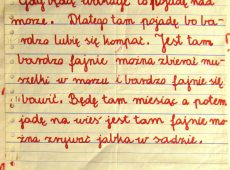 Gdy będą wakacje to pojadę nad
morze. Dlatego tam pojadę bo ba-
rdzo lubię się kompać. Jest tam
bardzo fajnie można zbierać mu-
szelki w morzu i bardzo fajnie się
bawić. Będę tam miesiąc a potem
jadę na wieś jest tam fajnie mo-
żna zrywać jabłka w sadzie.